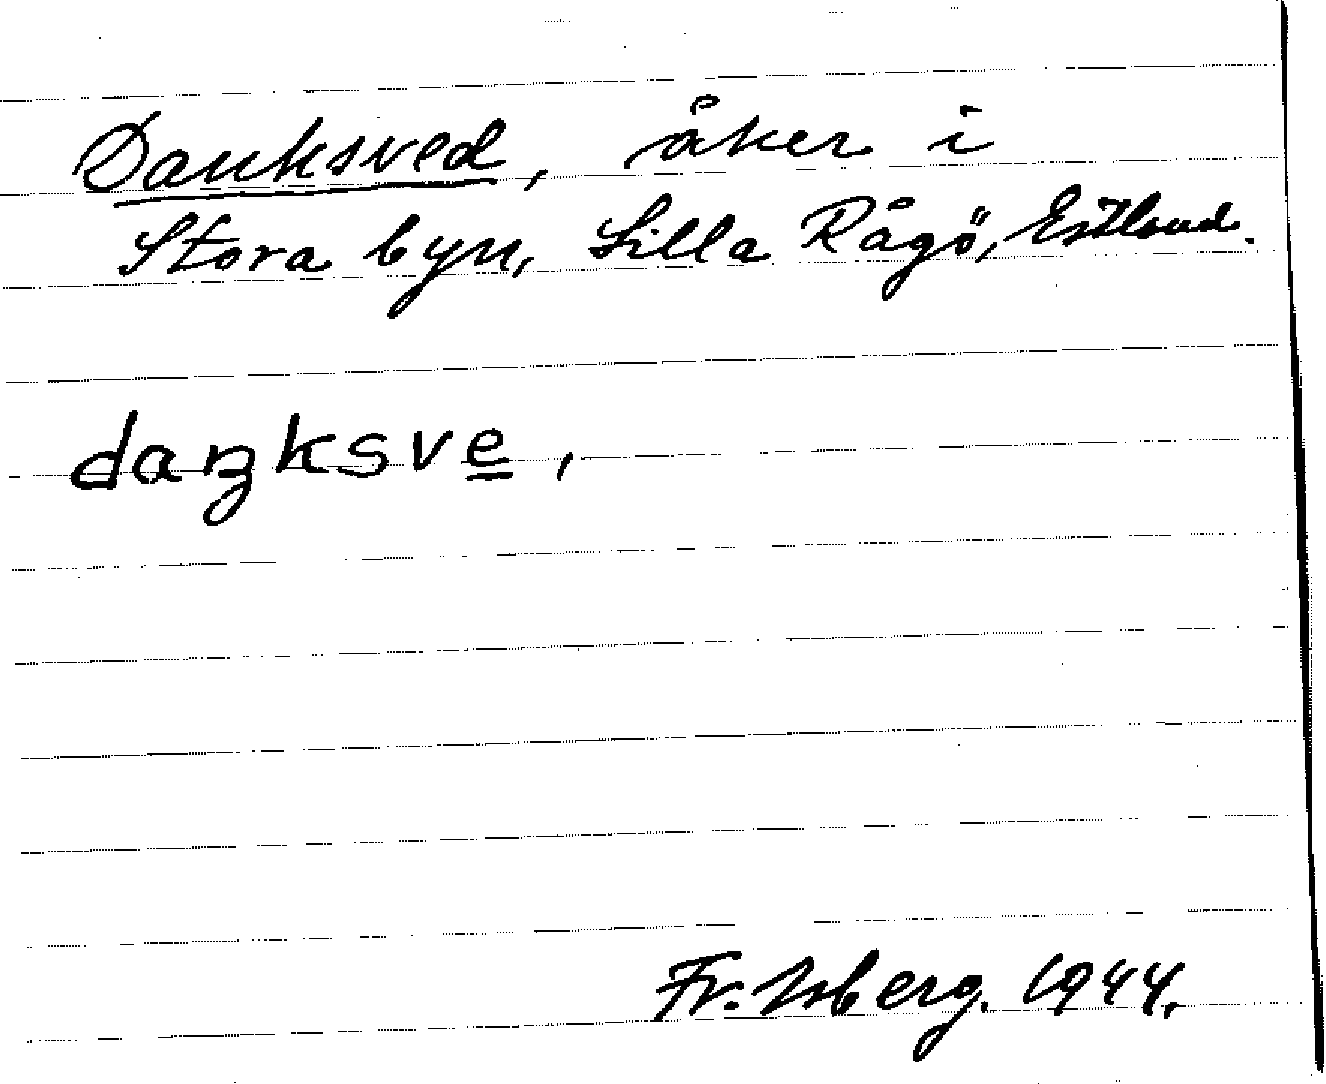 Danksved, åker i
Stora byn, Lilla Rågö, Estland.
daŋksve̲,
Fr. Isberg. 1944.